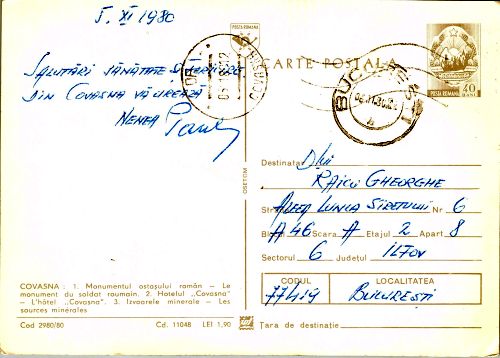 5. XI 1980
SALUTĂRI SĂNĂTATE ȘI
DIN COVASNA VĂ UREAZĂ
NENEA
POSTA ROMANA
CARTE POSTALĂ
BUCUREȘTI
POSTA ROMANA 40 BANI
Destinatar Dlui
RAICU GHEORGHE
Str. ALEEA LUNCA SIRETULUI Nr 6
Blocul A46 Scara A Etajul 2 Apart 8
Sectorul 6 Județul ILFOV
CODUL LOCALITATEA
77419 BUCUREȘTI
Țara de destinație
COVASNA : 1. Monumentul ostașului român — Le
monument du soldat roumain. 2. Hotelul „Covasna"
— L'hôtel „Covasna". 3. Izvoarele minerale — Les
sources minérales
Cod 2980/80 Cd. 11048 LEI 1,90